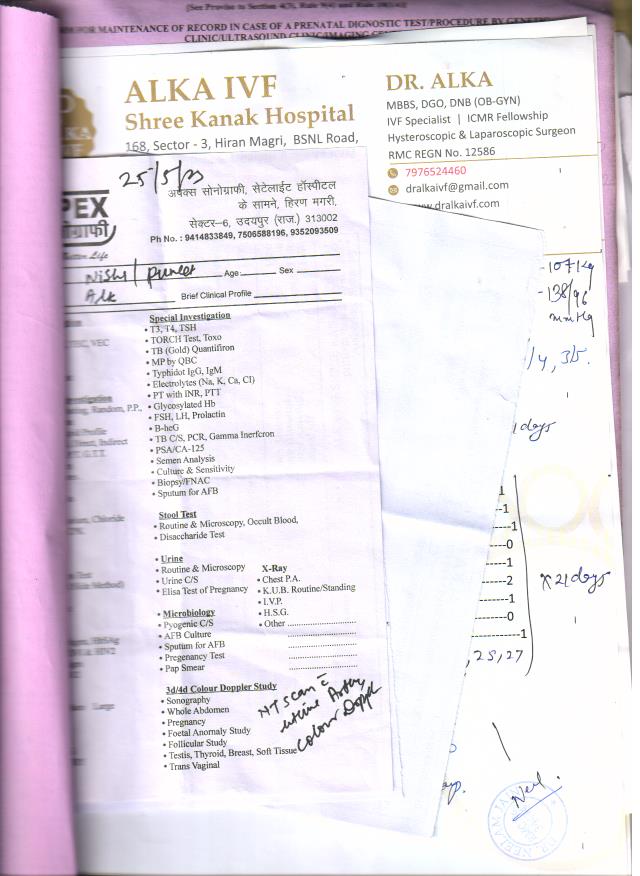 [See Proviso to Section 4(3), Rule 9(4) and Rule 10(1A)]
FOR MAINTENANCE OF RECORD IN CASE OF A PRENATAL DIGNOSTIC TEST/PROCEDURE BY
CLINIC/ULTRASOUND CLINIC/IMAGING
ALKA IVF
Shree Kanak Hospital
168, Sector - 3, Hiran Magri, BSNL Road,
DR. ALKA
MBBS, DGO, DNB (OB-GYN)
IVF Specialist | ICMR Fellowship
Hysteroscopic & Laparoscopic Surgeon
RMC REGN No. 12586
7976524460
dralkaivf@gmail.com
www.dralkaivf.com
25/5/23
PEX
अपेक्स सोनोग्राफी, सेटेलाईट हॉस्पीटल
के सामने, हिरण मगरी,
सेक्टर-6, उदयपुर (राज.) 313002
Ph No. : 9414833849, 7506588196, 9352093509
Better Life
Nishi / puneet Age: Sex
Brief Clinical Profile
Special Investigation
• T3, T4, TSH
• TORCH Test, Toxo
• TB (Gold) Quantifiron
• MP by QBC
• Typhidot IgG, IgM
• Electrolytes (Na, K, Ca, Cl)
• PT with INR, PTT
• Glycosylated Hb
• FSH, LH, Prolactin
• B-heG
• TB C/S, PCR, Gamma Inerfcron
• PSA/CA-125
• Semen Analysis
• Culture & Sensitivity
• Biopsy/FNAC
• Sputum for AFB
Stool Test
• Routine & Microscopy, Occult Blood,
• Disaccharide Test
• Urine
• Routine & Microscopy
• Urine C/S
• Elisa Test of Pregnancy
X-Ray
• Chest P.A.
• K.U.B. Routine/Standing
• I.V.P.
• H.S.G.
• Other ........................
• Microbiology
• Pyogenic C/S
• AFB Culture
• Sputum for AFB
• Pregenancy Test
• Pap Smear
3d/4d Colour Doppler Study
• Sonography
• Whole Abdomen
• Pregnancy
• Foetal Anomaly Study
• Follicular Study
• Testis, Thyroid, Breast, Soft Tissue
• Trans Vaginal
NT scan c̄
uterine Artery
colour Doppl
-107 kg
-138/96
mmHg
/4, 3/5.
days
1
-1
-----1
----0
----1
----2
-----1
------0
--------1
x 21 days
, 25, 27)